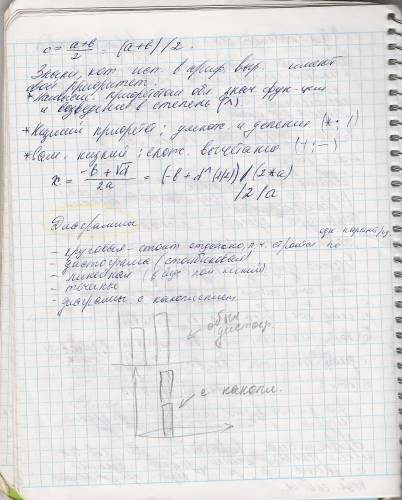 c = a+b/2 = (a+b)/2.
Знаки, кот. исп. в ариф. выр. имеют
свой приоритет.
* наивысш. приоритетом обл. знач. функ-ции
и возведение в степень (^)
* Низший приоритет; умнож. и деление (*; /)
* Сам. низкий; слож. вычетание (+; −)
x = −b + √d / 2a = (−b + d^(1/2)) / (2*a)
/2/a
Диаграммы
- круговая - стоит отдельно, т.к. строится по
- гистограмма (столбиковая)
- линейная (в виде лом. линий)
- точечные
- диаграммы с накоплением
обыч.
гистогр.
с накопл.